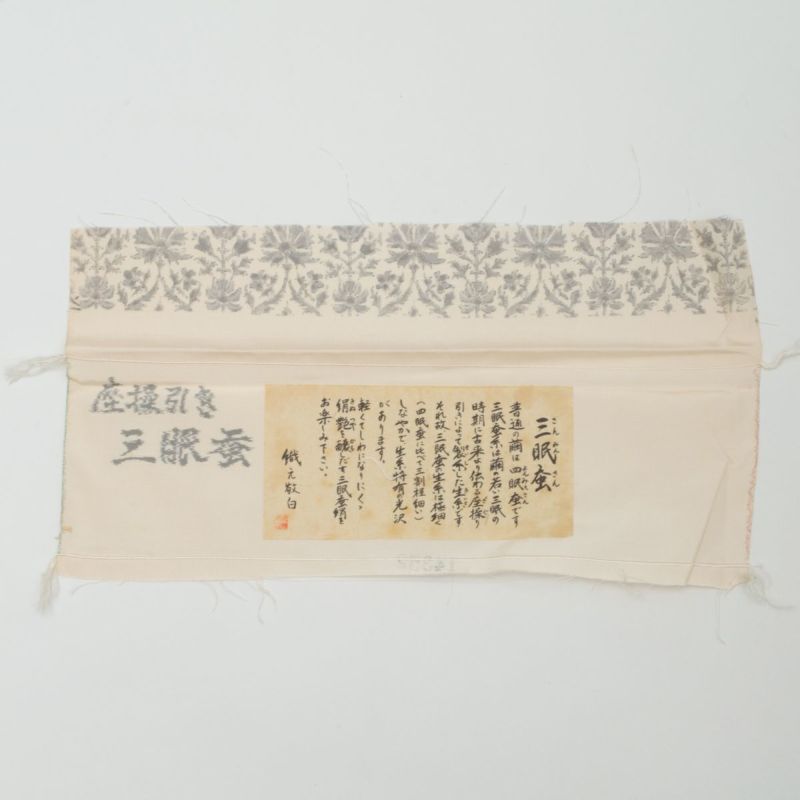 座操引き
三眠蚕
三眠蚕
さん みん さん
普通の繭は四眠蚕です
よんみんさん
三眠蚕糸は繭の若い三眠の
時期に古来より伝わる座操り
引きによって製糸した生糸です
それ故三眠蚕の生糸は極細く
(四眠蚕に比べて三割程細い)
しなやかで生糸特有の光沢
があります。
軽くてしわになりにくく
絹艶を醸しだす三眠蚕絹を
お楽しみ下さい。
織元敬白